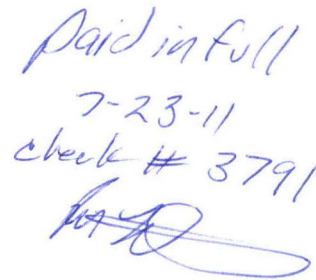 Paid in full
7-23-11
check # 3791